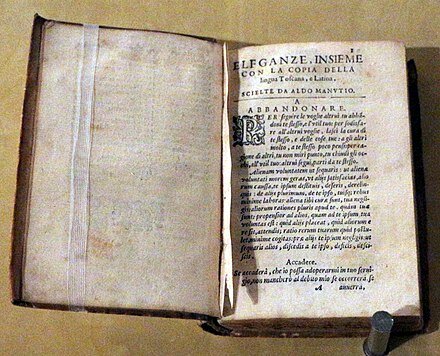 1
ELEGANZE, INSIEME
CON LA COPIA DELLA
lingua Toscana, e Latina,
SCIELTE DA ALDO MANUTIO.
A
ABBANDONARE.
PER seguire le voglie altrui tu abbādoni
te stesso, e l'util tuo: per sodisfare
all'altrui voglie, lasci la cura di
te stesso, e delle cose tue: a gli altri
molto, a te stesso poco pensi: per cagione
di altri, tu non miri punto, tu chiudi gli occhi,
all'util tuo: altrui segui, parti da te stesso.
Alienam voluntatem ut sequaris: ut alienæ
voluntati morem geras, ut alijs satisfacias,
causa, te ipsum destituis, deseris,
de alijs plurimum, de te ipso, tuisq; rebus
minimum laboras: aliena tibi curæ sunt, tua
aliorum rationes pluris apud te, quàm tuæ
sunt: propensior ad alios, quam ad te ipsum,
voluntas est: quid alijs placeat, quid aliorum e
re sit, attendis; ratio rerum tuarum quid
minime cogitas: præ alijs te ipsum negligis: ut
sequaris alios, discedis a te ipso, desicis,
Accadere.
Se accaderà, che io possa adoperarmi in tuo servigio,
non mancherò al debito mio: se occorrerà, se
A auuerrà,